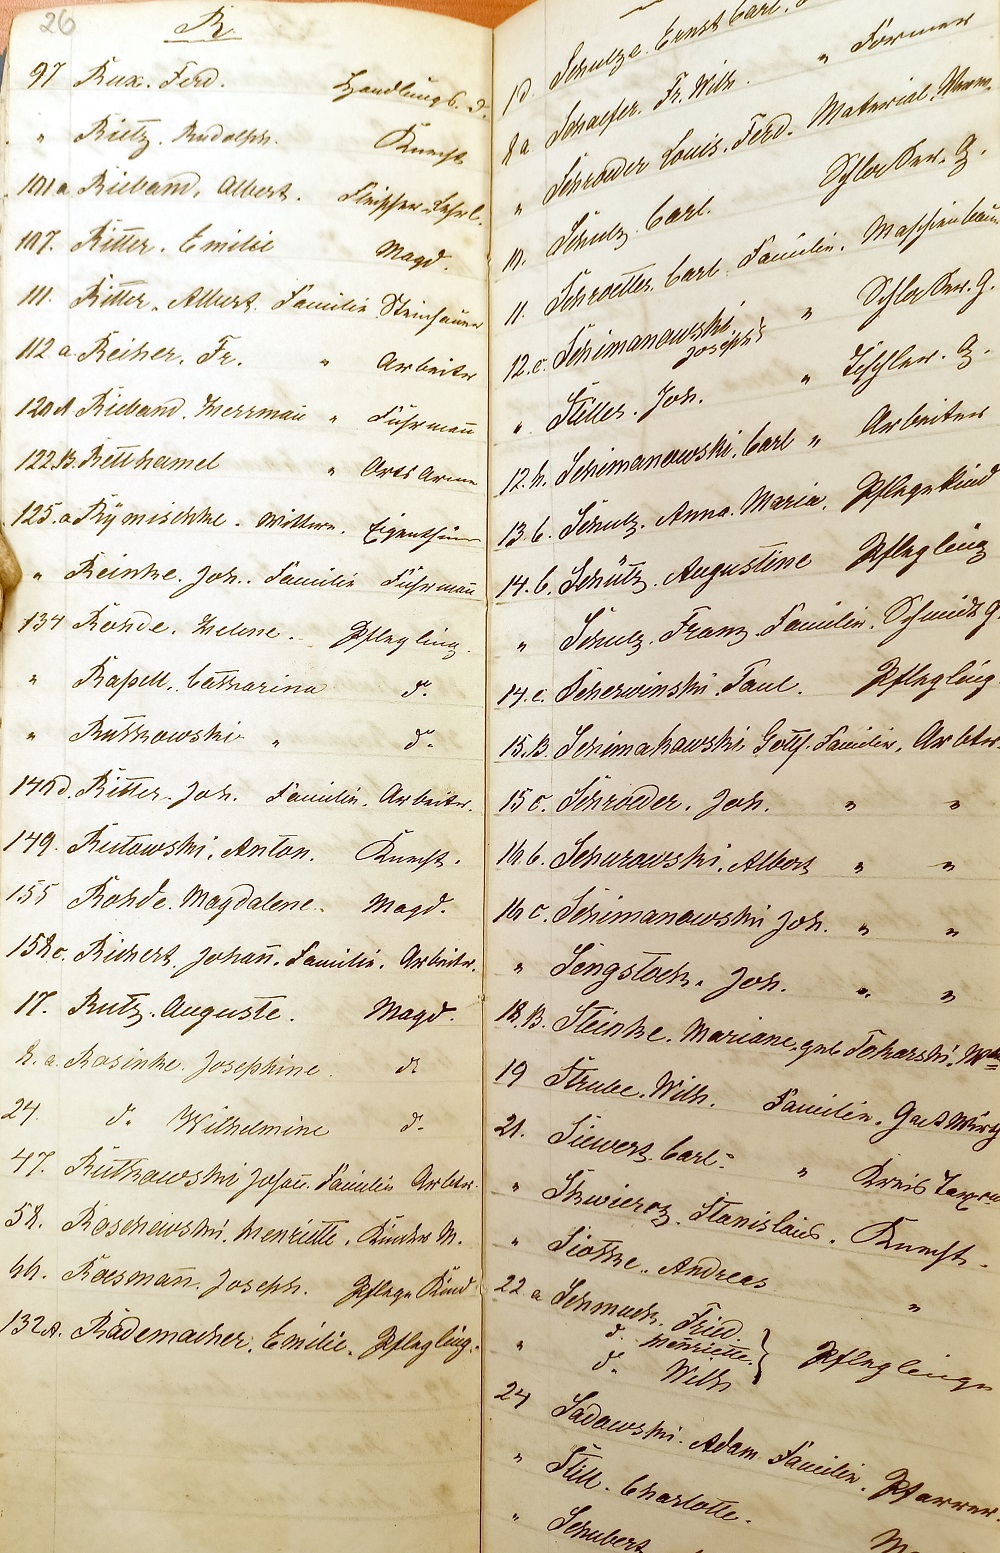 26
R.
97 Rux. Ferd. Handlungs. d.
" Rietz. Rudolph. Knecht
101a Rieband. Albert. Fleischer Lehrl.
107. Ritter. Emilie Magd.
111. Ritter. Albert. Familie Steinhauer
112 a. Reiher. Fr. " Arbeiter
120A Rieband. Herrmañ " Fuhrmañ
122.B. Retthamel " Orts Arme
125.a Rymischke. Wittwe. Eigenthüm
" Reinke. Joh. Familie Fuhrmañ
134 Rohde. Helene. Pflegling.
" Rapell. Catharina d°.
" Rutkowski " d°.
140d. Ritter. Joh. Familie. Arbeiter.
149. Rutowski. Anton. Knecht.
155 Rohde. Magdalene. Magd.
158c. Richert. Johañ. Familie. Arbeiter.
17. Rutz. Auguste. Magd.
8.a. Rosinke. Josephine. d°
24. d°. Wilhelmine d°.
47. Rutkowski Johañ. Familie Arbtr.
58. Roschewski. Henriette. Kinder M.
66. Roesmañ. Joseph. Pflege Kind
132A. Rademacher. Emilie. Pflegling.
1d. Schulze. Ernst Carl.
8a Schaefer. Fr. Wilh. " Förmer
" Schroeder Louis. Ferd. Material. Waaren.
10. Schulz. Carl. Schlosser. G.
11. Schroetter. Carl. Familie. Maschienbau
12.c. Schimanowski Joseph " Schlosser. G.
" Stiller. Joh. " Tischler. G.
12.h. Schimanowski. Carl " Arbeiter
13 b. Schulz. Anna. Maria. Pflege Kind
14.b. Schütz. Augustine Pflegling
" Schulz. Franz. Familie. Schmidt G.
14.c. Scherwinski. Paul. Pflegling
15.B. Schimakowski Gottf. Familie. Arbtr.
15 c. Schroeder. Joh. " "
16 b. Schurowski. Albert " "
16 c. Schimanowski Joh. " "
" Sengstock. Joh. " "
18.B. Steinke. Mariane. geb. Tokarski. Wwe
19 Strube. Wilh. Familie. Gast Wirth
21. Siewert. Carl. " Kreis Taxa
" Skwierez. Stanislaus. Knecht.
" Siotke. Andreas "
22 a Schmuck. Fried.
" d°. Henriette. } Pfleglinge
d°. Wilh
24 Sadowski. Adam Familie. Pfarrer.
" Still. Charlotte.
" Schubert